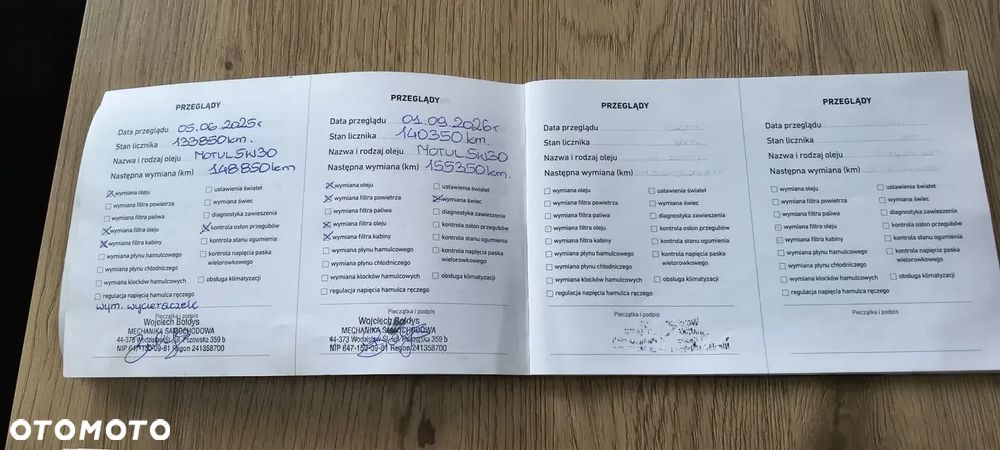 PRZEGLĄDY
Data przeglądu 05.06.2025r
Stan licznika 133850km.
Nazwa i rodzaj oleju MOTUL 5W30
Następna wymiana (km) 148850km
wymiana oleju
wymiana filtra powietrza
wymiana filtra paliwa
wymiana filtra oleju
wymiana filtra kabiny
wymiana płynu hamulcowego
wymiana płynu chłodniczego
wymiana klocków hamulcowych
regulacja napięcia hamulca ręcznego
ustawienia świateł
wymiana świec
diagnostyka zawieszenia
kontrola osłon przegubów
kontrola stanu ogumienia
kontrola napięcia paska
wielorowkowego
obsługa klimatyzacji
wym. wycieraczek
Pieczątka i podpis
Wojciech Bołdys
MECHANIKA SAMOCHODOWA
44-373 Wodzisław Śl.
359 b
Regon 241358700
PRZEGLĄDY
Data przeglądu 01.09.2026r
Stan licznika 140350km.
Nazwa i rodzaj oleju MOTUL 5W30
Następna wymiana (km) 155350km.
wymiana oleju
wymiana filtra powietrza
wymiana filtra paliwa
wymiana filtra oleju
wymiana filtra kabiny
wymiana płynu hamulcowego
wymiana płynu chłodniczego
wymiana klocków hamulcowych
regulacja napięcia hamulca ręcznego
ustawienia świateł
wymiana świec
diagnostyka zawieszenia
kontrola osłon przegubów
kontrola stanu ogumienia
kontrola napięcia paska
wielorowkowego
obsługa klimatyzacji
Pieczątka i podpis
Wojciech Bołdys
MECHANIKA SAMOCHODOWA
44-373 Wodzisław Śl.
359 b
Regon 241358700
PRZEGLĄDY
Data przeglądu
Stan licznika
Nazwa i rodzaj oleju
Następna wymiana (km)
wymiana oleju
wymiana filtra powietrza
wymiana filtra paliwa
wymiana filtra oleju
wymiana filtra kabiny
wymiana płynu hamulcowego
wymiana płynu chłodniczego
wymiana klocków hamulcowych
regulacja napięcia hamulca ręcznego
ustawienia świateł
wymiana świec
diagnostyka zawieszenia
kontrola osłon przegubów
kontrola stanu ogumienia
kontrola napięcia paska
wielorowkowego
obsługa klimatyzacji
Pieczątka i podpis
PRZEGLĄDY
Data przeglądu
Stan licznika
Nazwa i rodzaj oleju
Następna wymiana (km)
wymiana oleju
wymiana filtra powietrza
wymiana filtra paliwa
wymiana filtra oleju
wymiana filtra kabiny
wymiana płynu hamulcowego
wymiana płynu chłodniczego
wymiana klocków hamulcowych
regulacja napięcia hamulca ręcznego
ustawienia świateł
wymiana świec
diagnostyka zawieszenia
kontrola osłon przegubów
kontrola stanu ogumienia
kontrola napięcia paska
wielorowkowego
obsługa klimatyzacji
Pieczątka i podpis
OTOMOTO